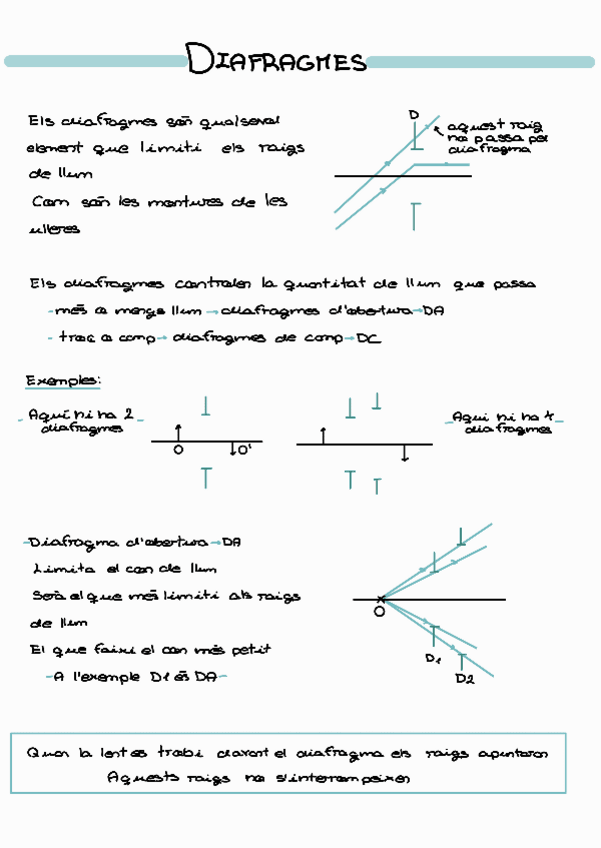 DIAFRAGMES
Els diafragmes són qualsevol
element que limiti els raigs
de llum
Com són les montures de les
ulleres
D
aquest raig
no passa pel
diafragma
Els diafragmes controlen la quantitat de llum que passa
- més o menys llum → diafragmes d'abertura → DA
- troç o camp → diafragmes de camp → DC
Exemples:
- Aquí hi ha 2 -
diafragmes
O
O'
- Aquí hi ha 4 -
diafragmes
- Diafragma d'abertura → DA
Limita el con de llum
Serà el que més limiti als raigs
de llum
El que faixi el con més petit
- A l'exemple D1 és DA -
O
D1
D2
Quan la lent es trobi davant el diafragma els raigs apuntaran
Aquests raigs no s'interrompeixen